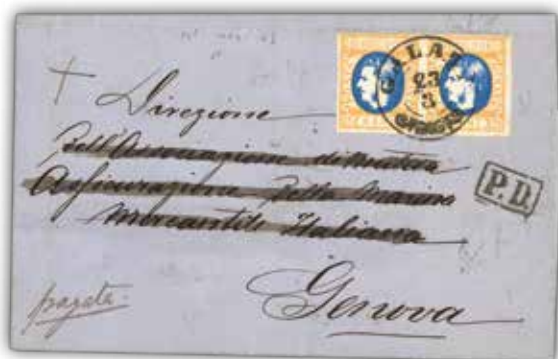 GALATZ
23
3
Direzione
Dell'Associazione di Mutua
Assicurazione Della Marina
Mercantile Italiana
P.D.
pagata
Genova